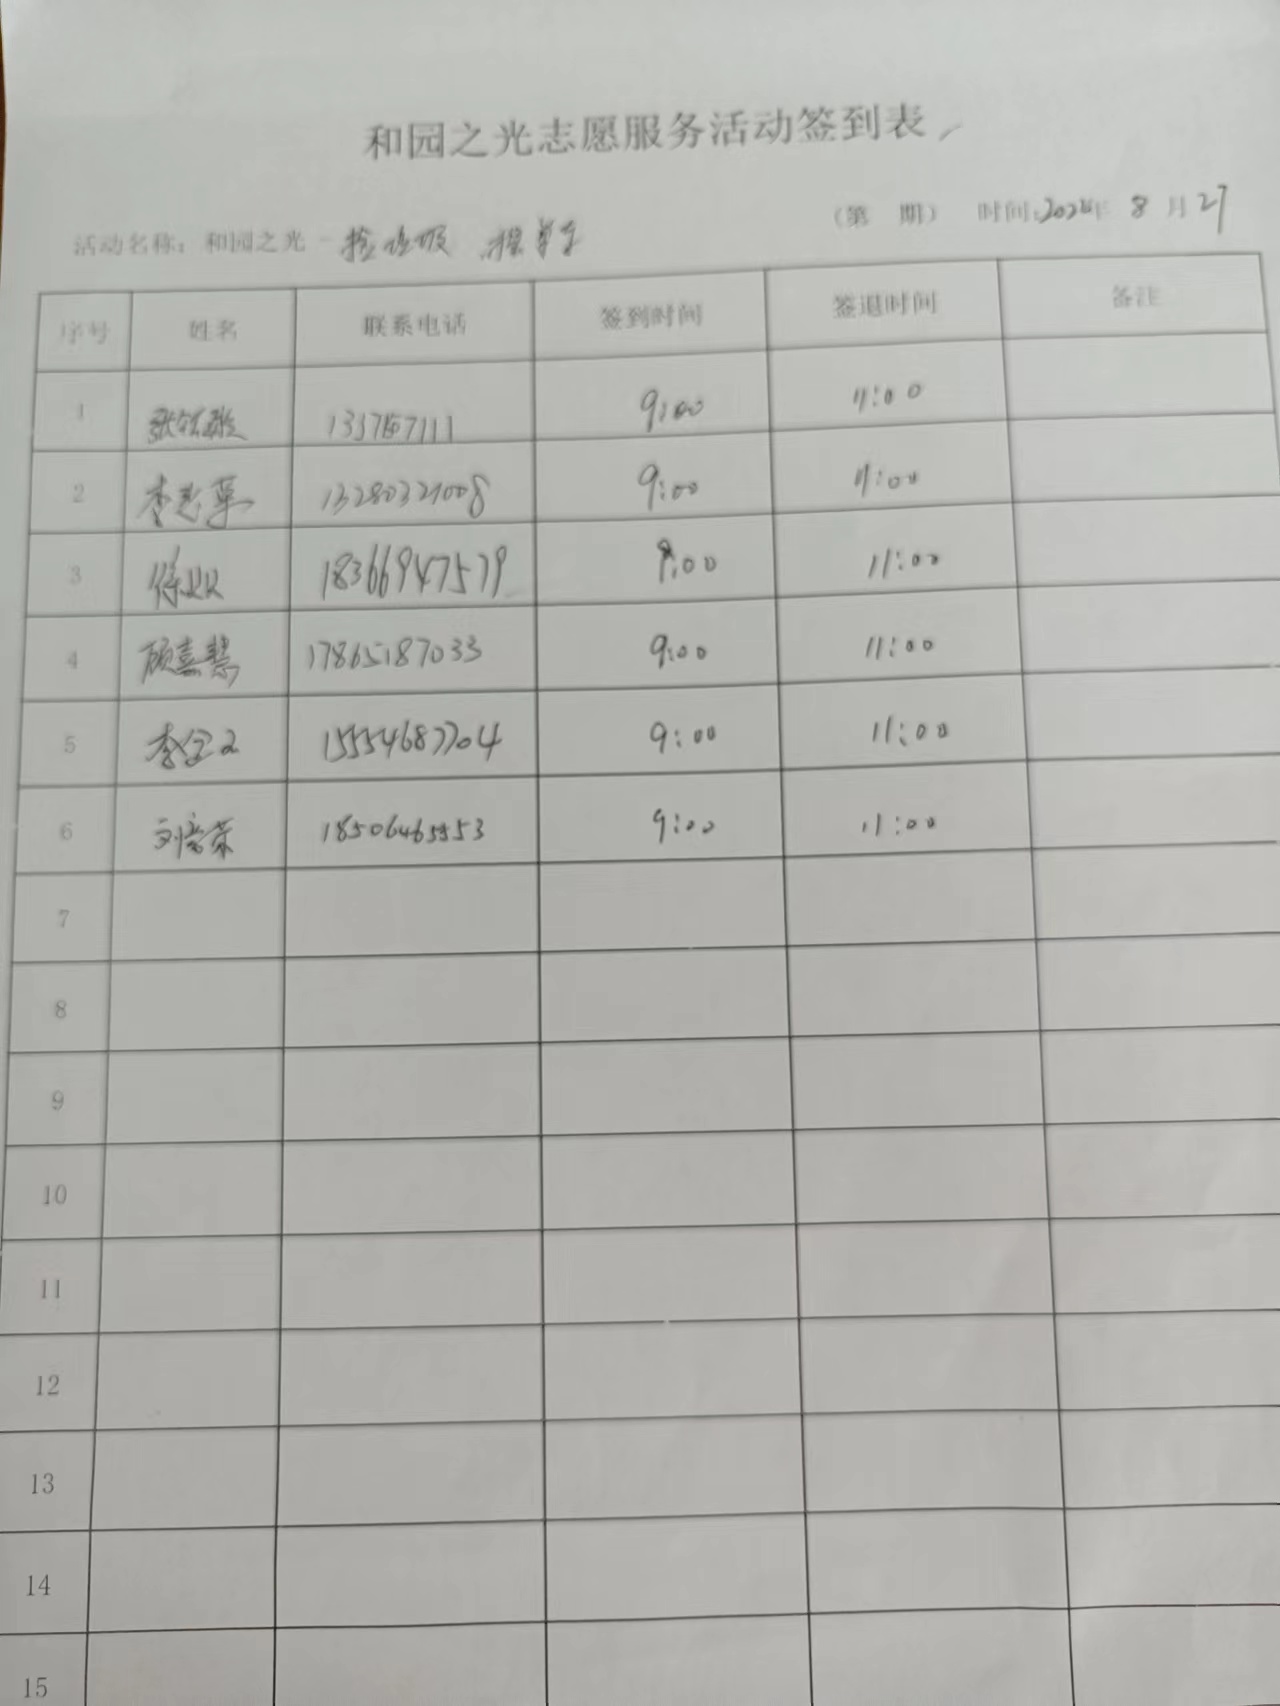 和园之光志愿服务活动签到表
（第 期） 时间:2024年 8月27
活动名称：和园之光-捡垃圾
序号 姓名 联系电话 签到时间 签退时间 备注
1 9:00 11:00
2 李志军 13280321008 9:00 11:00
3 18366947579 9:00 11:00
4 顾嘉慧 17865187033 9:00 11:00
5 15554687704 9:00 11:00
6 刘富荣 18506465553 9:00 11:00
7
8
9
10
11
12
13
14
15